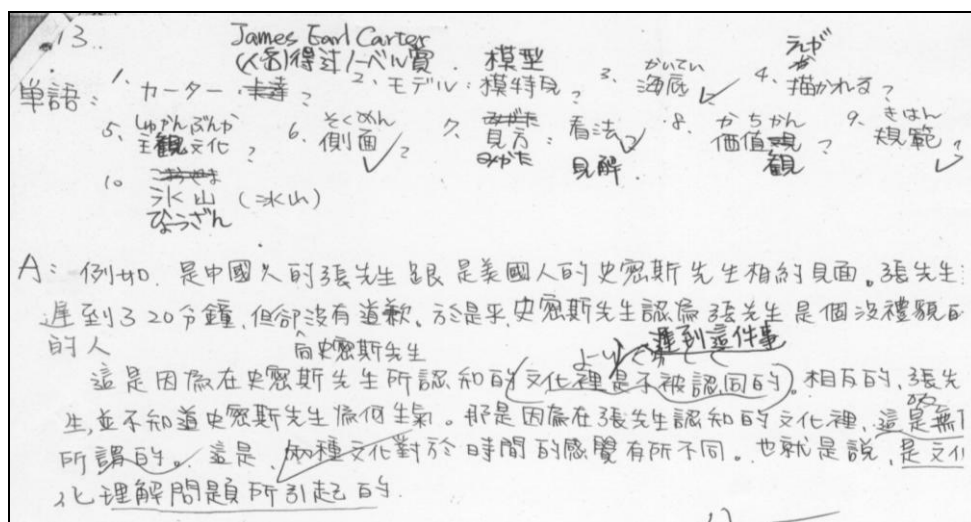 13..
James Earl Carter
(人名)得过ノーベル賞.
単語:
1. カーター 卡達?
2. モデル:模特兒?
模型
3. 海底
かいてい
4. 描かれる?
えが
5. 主観文化?
しゅかんぶんか
6. 側面?
そくめん
7. 見方:看法?
みかた
見解.
8. 価値観?
かちかん
観
9. 規範?
きはん
10. 氷山 (冰山)
ひょうざん
A: 例如. 是中國人的張先生跟是美國人的史密斯先生相約見面。張先生
遲到了20分鐘,但卻沒有道歉。於是乎,史密斯先生認為張先生是個沒禮貌
的人
向史密斯先生
遲到這件事
這是因為在史密斯先生所認知的文化裡是不被認同的。相反的,張先
生,並不知道史密斯先生為何生氣。那是因為在張先生認知的文化裡,這是無
所謂的。這是,兩種文化對於時間的感覺有所不同。也就是說,是文
化理解問題所引起的.